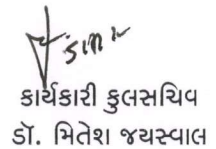 કાર્યકારી કુલસચિવ
ડૉ. મિતેશ જયસ્વાલ